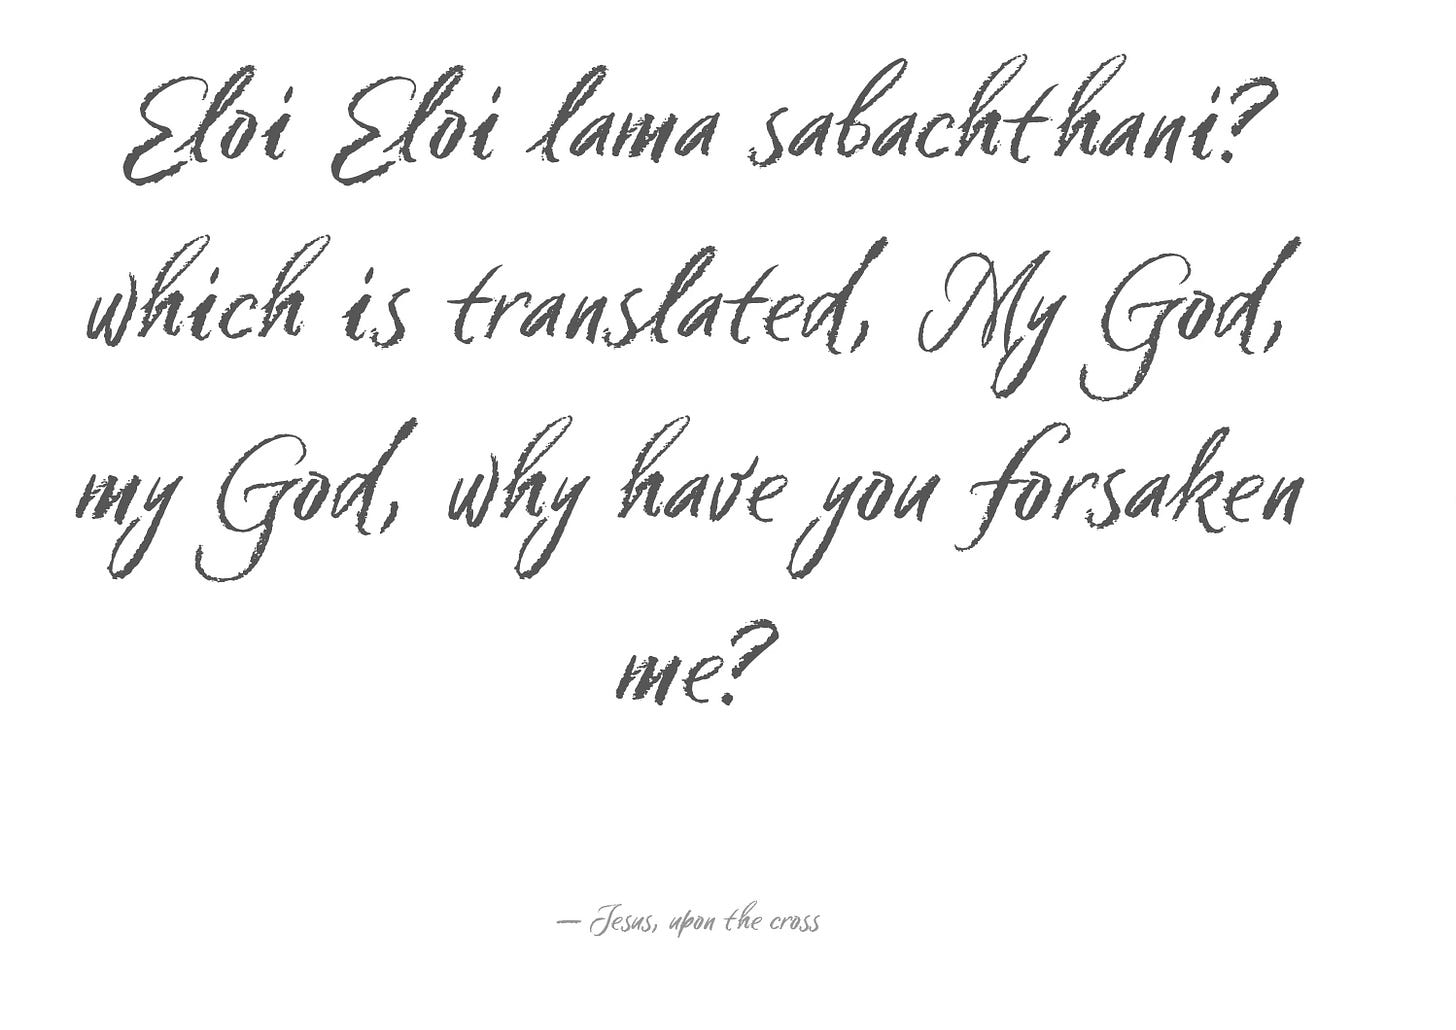 Eloi Eloi lama sabachthani?
which is translated, My God,
my God, why have you forsaken
me?
— Jesus, upon the cross